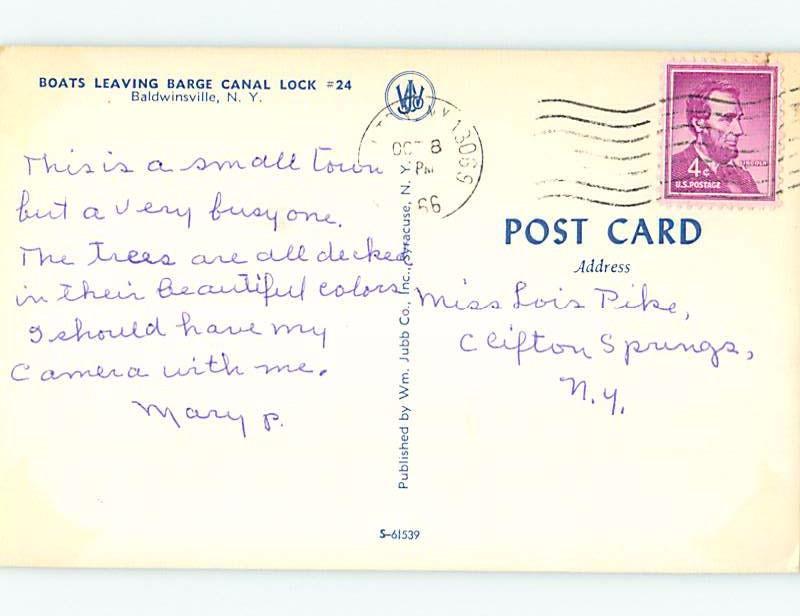 BOATS LEAVING BARGE CANAL LOCK #24
Baldwinsville, N. Y.
This is a small town
but a very busy one.
The trees are all decked
in their beautiful colors
I should have my
camera with me.
Mary P.
Published by Wm. Jubb Co., Inc., Syracuse, N. Y.
S-61539
NY 13069
OCT 8
PM
66
LINCOLN
4¢
U.S. POSTAGE
POST CARD
Address
Miss Lois Pike,
Clifton Springs,
N.Y.